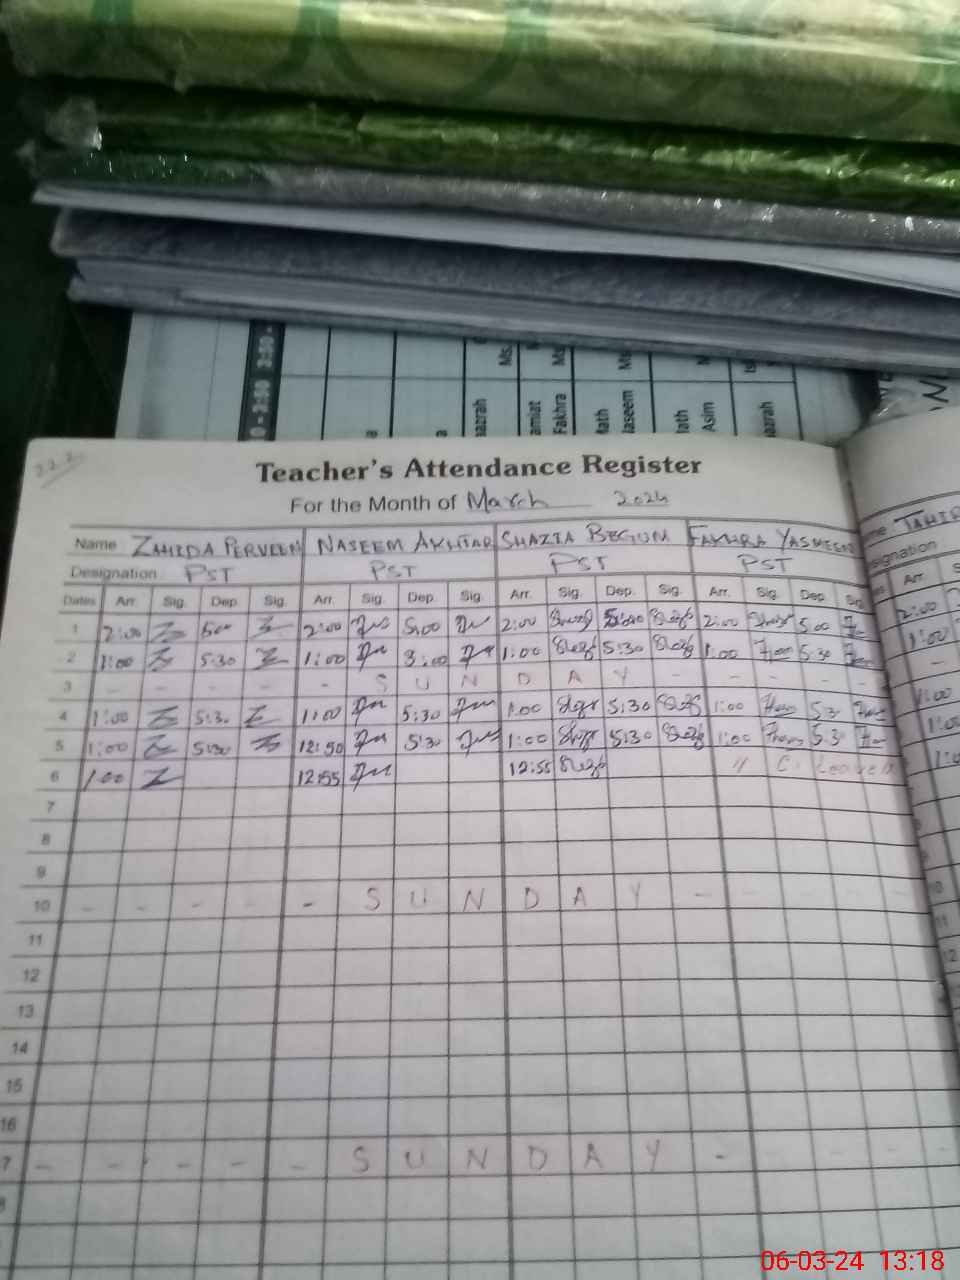 0 - 2:30 2:30 -
Ms.
Ms
Ms
M
Isl
azrah
amiat
Fakhra
Math
Naseem
lath
Asim
azrah
Teacher's Attendance Register
For the Month of March 2024
Name ZAHIDA PERVEEN NASEEM AKHTAR SHAZIA BEGUM FAKHRA YASMEEN
Designation PST PST PST PST
Dates Arr. Sig. Dep. Sig. Arr. Sig. Dep. Sig. Arr. Sig. Dep. Sig. Arr. Sig. Dep. Sig.
1 2:00 5:00 2:00 5:00 2:00 5:00 2:00 5:00 2:00
2 1:00 5:30 1:00 3:00 1:00 5:30 1:00 5:30 1:00
3 - - - - - - S U N D A Y - - - - -
4 1:00 5:30 1:00 5:30 1:00 5:30 1:00 5:30 1:00
5 1:00 5:30 12:50 5:30 1:00 5:30 1:00 5:30 1:00
6 1:00 12:55 12:55 // C. Leave //
7
8
9
10 - - - - - S U N D A Y - - - -
11
12
13
14
15
16
7 - - - - - - S U N D A Y -
8
me TAHIR
signation
Arr. S
10
11
12
06-03-24 13:18